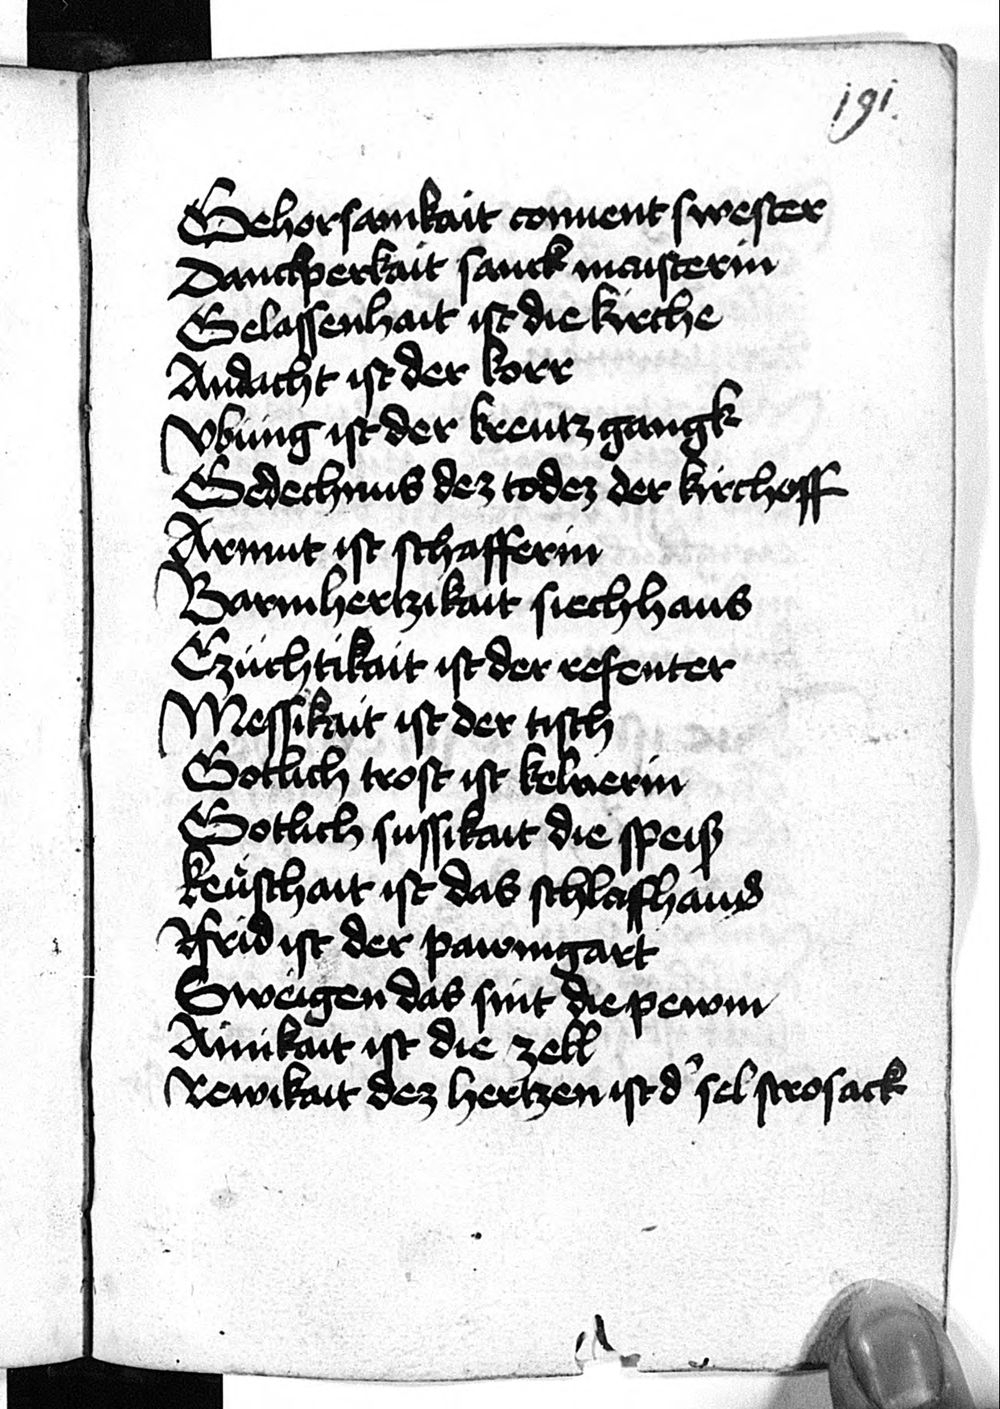 191.
Gehorsamkait conuent swester
Danckperkait sanck maisterin
Gelassenhait ist die kirche
Andacht ist der korr
Vbung ist der kreutz gangk
Gedechnus dez todez der kirchoff
Armut ist schafferin
Barmhertzikait siechhaus
Czuchtikait ist der refenter
Messikait ist der tisch
Gotlich trost ist kelnerin
Gotlich sussikait die speiß
keuschait ist das schlaffhaus
frid ist der pawmgart
Sweigen das sint die pewm
Ainikait ist die zell
Rewikait dez hertzen ist d' sel strosack